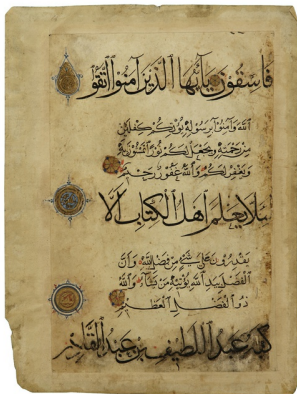 فاسقون يا أيها الذين آمنوا اتقوا
الله وآمنوا برسوله يؤتكم كفلين
من رحمته ويجعل لكم نورا تمشون به
ويغفر لكم والله غفور رحيم
لئلا يعلم أهل الكتاب ألا
يقدرون على شيء من فضل الله وأن
الفضل بيد الله يؤتيه من يشاء والله
ذو الفضل العظيم
كتبه عبد اللطيف بن عبد القادر